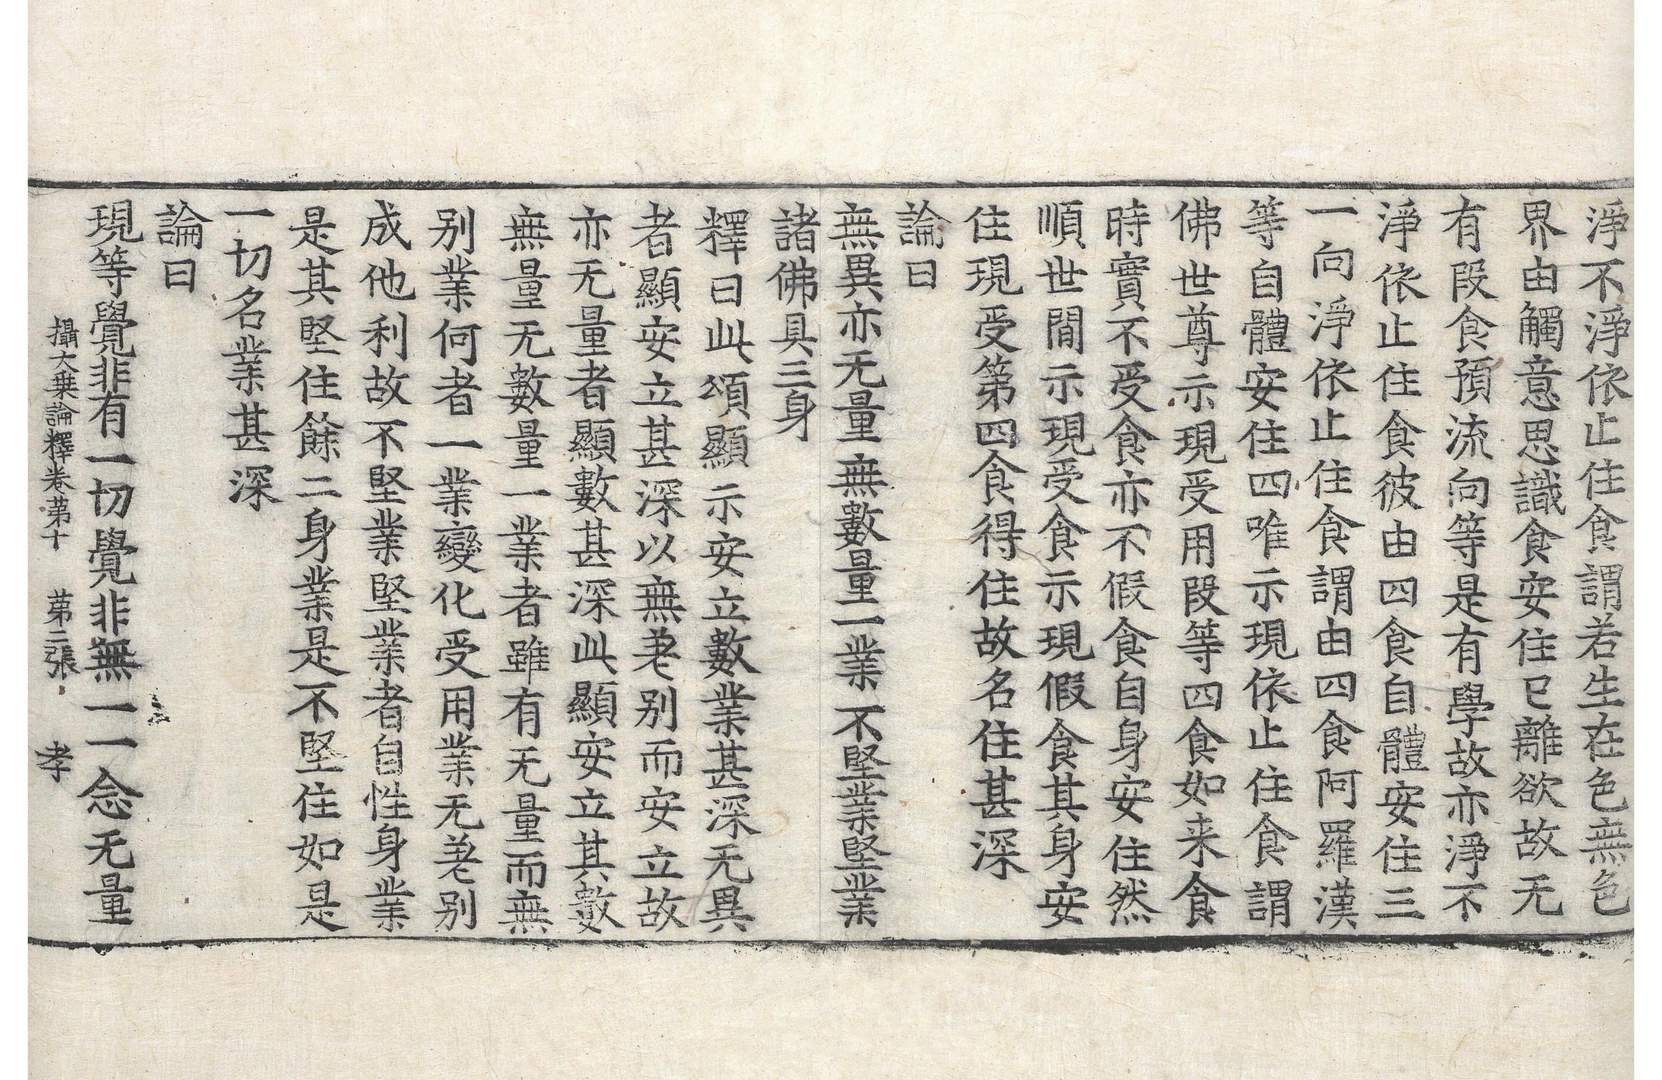 淨不淨依止住食謂若生在色無色
界由觸意思識食安住已離欲故无
有段食預流向等是有學故亦淨不
淨依止住食彼由四食自體安住三
一向淨依止住食謂由四食阿羅漢
等自體安住四唯示現依止住食謂
佛世尊示現受用段等四食如来食
時實不受食亦不假食自身安住然
順世間示現受食示現假食其身安
住現受第四食得住故名住甚深
論曰
無異亦无量無數量一業不堅業堅業
諸佛具三身
釋曰此頌顯示安立數業甚深无異
者顯安立甚深以無差别而安立故
亦无量者顯數甚深此顯安立其數
無量无數量一業者雖有无量而無
别業何者一業變化受用業无差别
成他利故不堅業堅業者自性身業
是其堅住餘二身業是不堅住如是
一切名業甚深
論曰
現等覺非有一切覺非無一一念无量
攝大乗論釋卷苐十 苐二張 孝